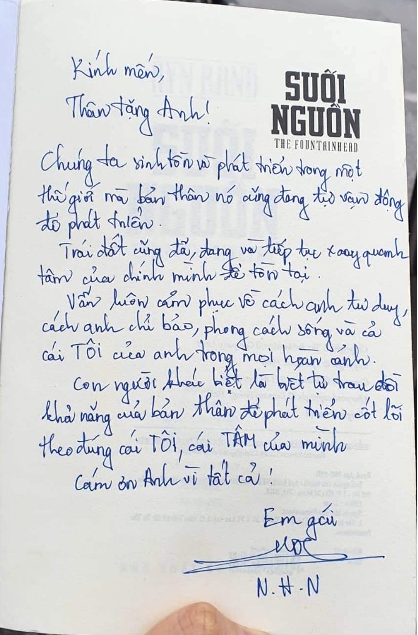 Kính mến,
Thân tặng Anh!
SUỐI
NGUỒN
THE FOUNTAINHEAD
Chúng ta sinh tồn và phát triển trong một
thế giới mà bản thân nó cũng đang tự vận động
để phát triển.
Trái đất cũng đã, đang và tiếp tục xoay quanh
tâm của chính mình để tồn tại.
Vẫn luôn cảm phục về cách anh tư duy,
cách anh chỉ bảo, phong cách sống và cả
cái TÔI của anh trong mọi hoàn cảnh.
Con người khác biệt là biết tự trau dồi
khả năng của bản thân để phát triển cốt lõi
theo đúng cái TÔI, cái TÂM của mình
Cám ơn Anh vì tất cả!
Em gái
N.H.N